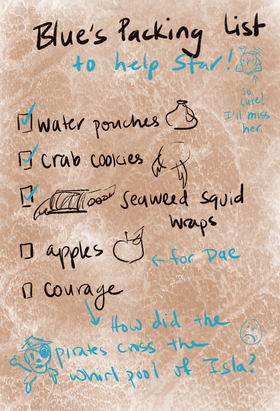 Blue's Packing List
to help Star!
so cute!
I'll miss
her.
water pouches
crab cookies
seaweed squid
wraps
apples
← for Dae
courage
How did the
pirates cross the
whirlpool of Isla?